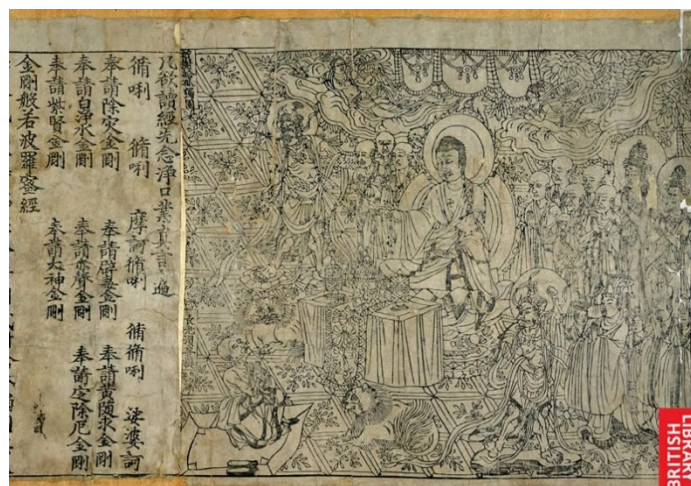 祇樹給孤獨園
長老須菩提
凡欲讀經先念淨口業真言遍
脩唎 脩唎 摩訶脩唎 脩脩唎 娑婆訶
奉請除灾金剛 奉請辟毒金剛 奉請黃隨求金剛
奉請白淨水金剛 奉請赤聲金剛 奉請定除厄金剛
奉請紫賢金剛 奉請大神金剛
金剛般若波羅蜜經
BRITISH
LIBRARY